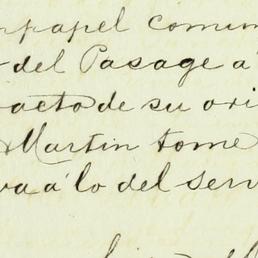 papel comun
del Pasage a
acto de su ori
Martin tome
va a lo del serv